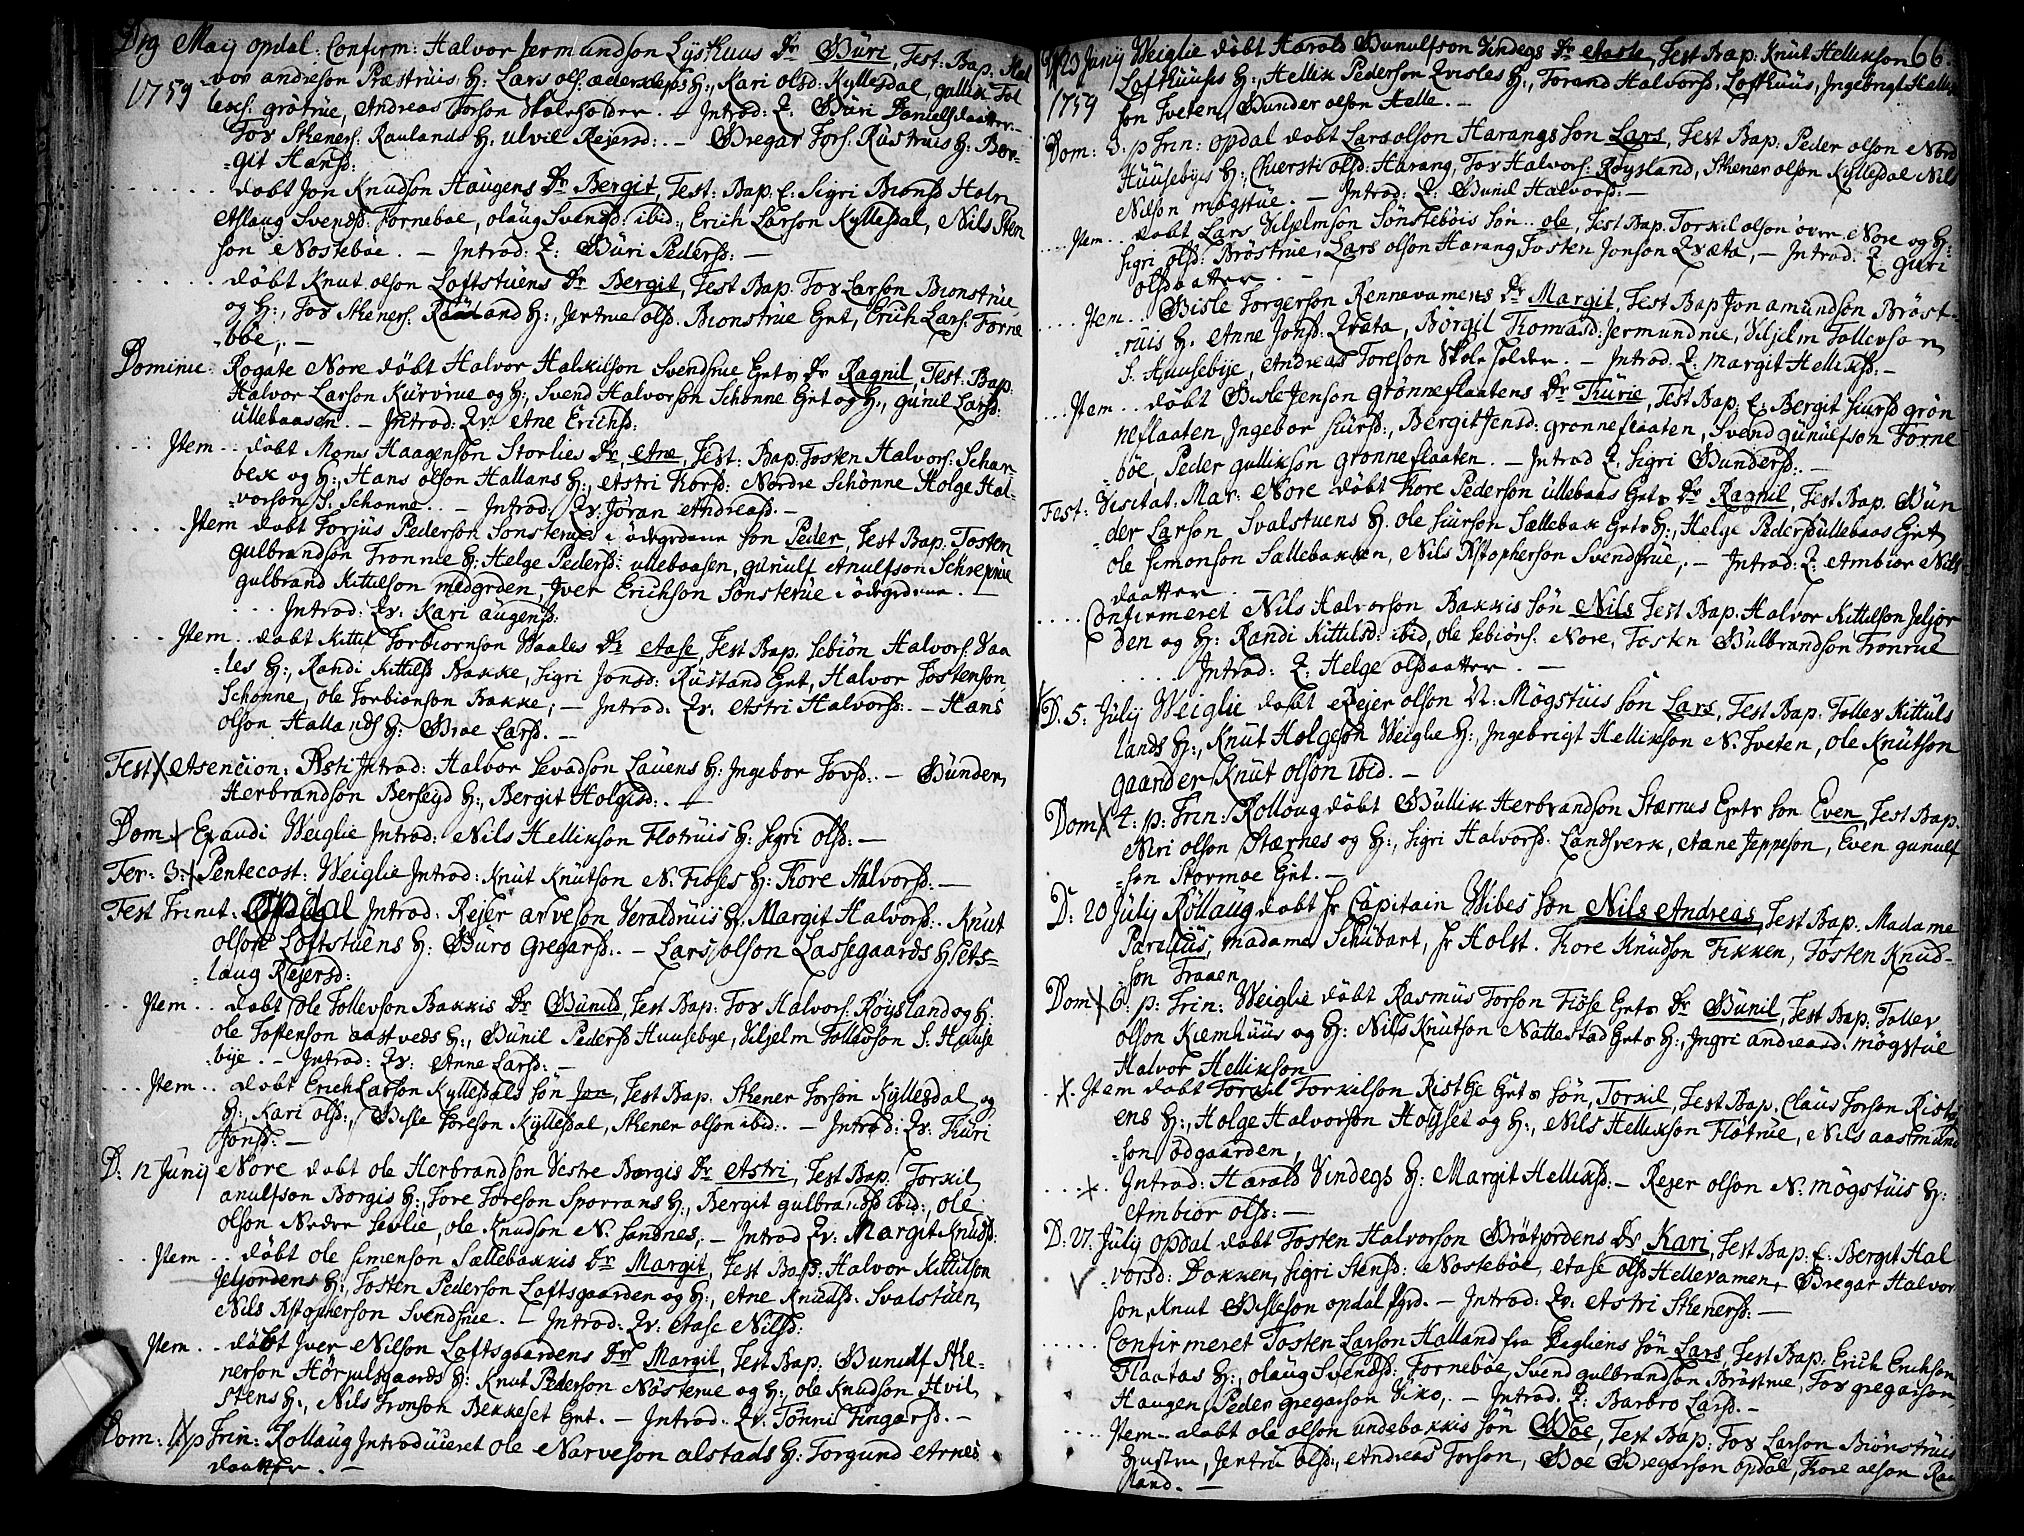 D 19 Maij opdal: Confirm: Halvor Jermundson Lÿsthuus Dr Güri, Test: Bap: Hal
1759 vor andreson Præstruis H: Lars ols: H:, Kari olsd: Kyllesdal, gullik Tol
lexs: grötrüe, Andreas Torson Skoleholder. - Introd: Q: Güri Danielsdaatter.
Tor Stheners. Raulands H: ulvil Rejersd: - Gregar Tors: Rustruis H: Ber-
git Hansd:
döbt Jon Knudson Haugens Dr Bergit, Test: Bap: E: Sigri Bionsd Halm
Aslaug Svendsd: Fornebøe, olaug Svendsd: ibid:, Erich Larson Kyllesdal, Nils Sten
son Nostebøe. - Introd: Q: Güri Pedersd: -
döbt Knut olson Loftstuens Dr Bergit, Test Bap. Tor Larson Bionstrüe
og H:, Tor Stheners: Rauland H:, Jertrue olsd: Bionstrüe Gvt, Erich Lars: Forne
böe, -
Dominic: Rogate Nore döbt Halvor Halkilson Svendsrue Gvts Dr Ragnil, Test: Bap.
Halvor Larson Kurvrue og H:, Svend Halvorson Schönne Gvt og H:, gunil Larsd:
ullebaasen. - Introd: Qv: Ane Erichsd:
Item döbt Mons Haagenson Storlies Dr, Ane, Test: Bap: Tosten Halvors: Schar
bek og H:, Hans olson Hallans H:, Astri Thorsd: Nordre Schönne Holge Hal-
vorson S. Schonne. - Introd: Qv: Jöran Andreasd. -
Item döbt Torjus Pederson Sönsterud i ödegrdene son Peder, Test Bap: Tosten
Gulbrandson Tronrue H: Helge Pedersd: ullebaasen, gunulf Anulfson Schreprüe
gulbrand Kittilson medgrden, Iver Erichson Sonsterüe i ödegrdene. -
Introd: Qv: Kari augensd:
Item döbt Kittil Torbiornson Waales Dr Aase, Test Bap. Sebiön Halvors: Vaa
les H:, Randi Kittilsd Bakke, Sigri Jonsd: Rüstand Gvt, Halvor Tostenson
Schönne, ole Torbionson Bakke; - Introd: Qv: Astri Halvorsd: - Hans
olson Hallands H: Groe Larsd. -
Fest X Asencion: Xsti Introd: Halvor Sevadson Lauens H: Ingebor Tovsd: - Gunder
Herbrandson Berseyd H:, Bergit Holgisd: -
Dom: X Exaudi Weiglie Introd: Nils Hellikson Flotruis H: Sigri olsd: -
Fer: 3: X Pentecost: Weiglie Introd: Knut Knutson N: Fioses H: Tore Halvorsd: -
Fest Trinit: Opdal Introd: Rejer arveson Veraldruis H: Margit Halvorsd: Knut
olson Loftstüens H: Guro Gregarsd: - Lars olson Lassegaards H: As-
laug Rejersd:
Item döbt Ole Tollevson Bakkis Dr Gunild, Test Bap: Tor Halvors: Røysland og H:
ole Tostenson aastveds H:, Gunil Pedersd Huusebye, Viljelm Tollevson S: Huuse
bije. - Introd: Qv: Anne Larsd: -
Item döbt Erich Larson Kyllesdals Son Jon, Test Bap: Sthener Torson Kyllesdal og
H: Kari olsd:, Gisle Toreson Kyllesdal, Sthener olson ibid: - Introd: Qv: Turi
Jonsd: -
D: 12 Junij Nore döbt ole Herbrandson Vestre Borgis Dr Astri, Test Bap. Torkil
anulfson Borgis H:, Tore Toreson Sporrans H:, Bergit gulbrandsd ibid:, ole
olson Nedre Sevlie, ole Knudson N. Sandnes; - Introd Qv: Margit Knudsd:
Item döbt ole Simenson Sællebakkis Dr Margit, Test Bap: Halvor Kittilson
Jeljordens H:, Tosten Pederson Loftsgaarden og H:, Ane Knudsd. Svalstüen,
Nils Xstopherson Svendsrue. - Introd: Qv: Aase Nilsd:
Item döbt Iver Nilson Loftsgaardens Dr Margil, Test Bap: Gunulf Sthe-
nerson Hörjulsgaards H: Knut Pederson Nösterue og H:, ole Knudson Hvil
stens H:, Nils Tronson Bekkeset Gvt. - Introd. Qv. Tönni Fingarsd. -
Dom: 1 X p Trin: Rollaug Introduceret Ole Narveson alstads H: Torgund Arnes
daatter. -
D 23 Junij Weiglie döbt Harald Gunulfson Vindegs Dr Aaste, Test Bap. Knut Hellikson 66.
1759 Lofthuuses H:, Hellik Pederson Qvisles H:, Torand Halvorsd: Lofthuus, Ingebrigt Hellik
son Tveten, Gunder olson Helle. -
Dom: 3. p Trin: opdal döbt Lars olson Harangs Son Lars, Test Bap: Peder olson Nord
Huusebyes H:, Chiersti olsd: Harang, Tor Halvors: Røysland, Sthener olson Kyllesdal Nils
Nilson mögstüe. - Introd: Q: Gunil Halvorsd: -
Item döbt Lars Viljelmson Sönsteböis Son ole, Test Bap. Torkil olson över Nore og H:
Sigri olsd: Bröstrue, Lars olson Harang, Tosten Jonson Qvæta, - Introd: Q: Guri
olsdaatter. -
Item Gisle Torgerson Rennevamens Dr Margit, Test Bap Jon amundson Bröst-
ruis H. Anne Jonsd: Qvæta, Börgil Thomasd: Jermundrue, Viljelm Tollevson
S. Huusebije, Andreas Toreson Skoleholder. - Introd: Q: Margit Helliksd: -
Item döbt Gisle Jenson grönneflaatens Dr Turie, Test Bap: E: Bergit Siursd grön
neflaaten, Ingebor Siursd:, Bergit Jensd: gronneflaaten, Svend gunulfson Forne
böe, Peder gullikson gronneflaaten. - Introd Q. Sigri Gundersd: -
Fest: Visitat. Mar: Nore döbt Tore Pederson ullebaas Gvts Dr Ragnil, Test Bap. Gun
der Larson Svalstuens H: ole Siurson Sællebak Gvts H:, Helge Pedersd ullebaas Gvt
ole Simonson Sællebakken, Nils Xstopherson Svendsrue, - Introd: Q: Ambior Nils
daatter. -
Confirmeret Nils Halvorson Bakkis Son Nils Test Bap: Halvor Kittelson Jeljor
den og H: Randi Kittulsd: ibid, ole Sebiörs: Nore, Tosten Gulbrandson Tronrue
Introd: Q: Helge olsdaatter. -
X D. 5: Julij Weiglie döbt Rejer olson N: Mögstuis Son Lars, Test Bap. Tollev Kittuls
lands H:, Knut Holgeson Weiglie H:, Ingebrigt Hellikson N. Tveten, ole Knutson
gaarder, Knut olson ibid. -
Dom X 4: p: Trin: Rolloug döbt Gullik Herbrandson Stærnes Gvts Son Even, Test Bap.
Niri olson Stærnes og H:, Sigri Halvorsd: Landsverk, Aane Jeppeson, Even gunulf
son Stormoe Gvt. -
D: 20 Julij Röllaug döbt Hr Capitain Wibes Son Nils Andreas, Test Bap. Madame
Parelius, Madame Schubart, Hr Holst. Tore Knudson Fikken, Tosten Knud-
son Traaen
Dom X 6: p: Trin: Weiglie döbt Rasmus Torson Fiose Gvts Dr Gunil, Test Bap: Tollev
olson Kiemhuus og H: Nils Knutson Nattestad Gvts H:, Ingri andreasd: mögstüe
Halvor Hellikson
X. Item döbt Torkil Torkilson Ristthe Gvts Son, Torkil, Test Bap. Claus Torson Rist
ens H:, Holge Halvorson Holfset og H:, Nils Hellikson Flötrue, Nils aasmund
son ödgaarden,
X. Introd: Harald Vindegs H: Margit Helliksd - Rejer olson N: mögstuis H:
Ambior olsd: -
D: 27. Julij opdal döbt Tosten Halvorson Grötjordens Dr Kari, Test Bap: E: Bergit Hal
vorsd: Dokken, Sigri Stensd: Nostebøe, Aase olsd Hellevamen, Gregar Halvor
son, Knut Gisleson opdal Grd. - Introd: Qv: Astri Sthenersd: -
Confirmeret Tosten Larson Halland fra Degliens Son Lars, Test Bap: Erich Erichson
Flaatas H:, olaug Svendsd: Fornebøe, Svend gulbrandson Bröstrue, Tor gregarson
Haugen, Peder gregarson Viko, - Introd: Q: Barbro Larsd. -
Item döbt ole olson undebakkis Son Goe, Test Bap: Tor Larson Biönstruis
Hustru, Jertru olsd:, Andreas Torson, Goe Gregarson opdal, Tore olson Rau
land. -